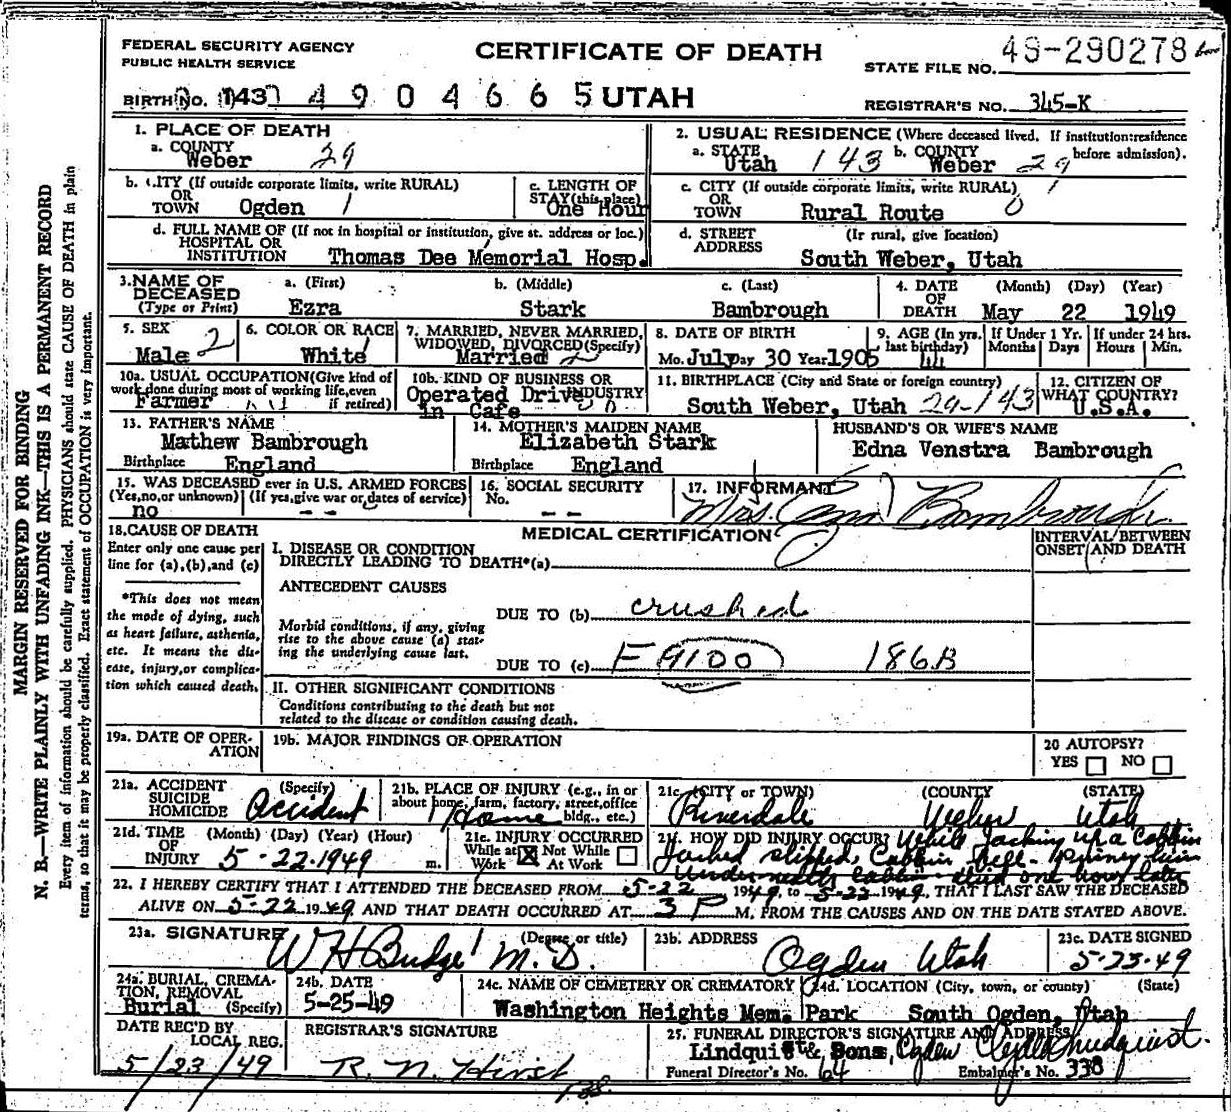 FEDERAL SECURITY AGENCY
PUBLIC HEALTH SERVICE
CERTIFICATE OF DEATH
STATE FILE NO. 49-290278
BIRTH NO. 143 4904665 UTAH
REGISTRAR'S NO. 345-K
1. PLACE OF DEATH
a. COUNTY
Weber 29
2. USUAL RESIDENCE (Where deceased lived. If institution:residence before admission).
a. STATE b. COUNTY
Utah 143 Weber 29
b. CITY (If outside corporate limits, write RURAL)
OR
TOWN Ogden 1
c. LENGTH OF
STAY (this place)
One Hour
c. CITY (If outside corporate limits, write RURAL)
OR
TOWN Rural Route 0
d. FULL NAME OF (If not in hospital or institution, give st. address or loc.)
HOSPITAL OR
INSTITUTION Thomas Dee Memorial Hosp.
d. STREET (If rural, give location)
ADDRESS South Weber, Utah
3. NAME OF a. (First) b. (Middle) c. (Last)
DECEASED
(Type or Print) Ezra Stark Bambrough
4. DATE (Month) (Day) (Year)
OF
DEATH May 22 1949
5. SEX
Male 2
6. COLOR OR RACE
White
7. MARRIED, NEVER MARRIED,
WIDOWED, DIVORCED (Specify)
Married 2
8. DATE OF BIRTH
Mo. July Day 30 Year 1905
9. AGE (In yrs. last birthday)
44
If Under 1 Yr. Months Days
If under 24 hrs. Hours Min.
10a. USUAL OCCUPATION (Give kind of
work done during most of working life, even
if retired)
Farmer
10b. KIND OF BUSINESS OR
INDUSTRY
Operated Drive
in Cafe
11. BIRTHPLACE (City and State or foreign country)
South Weber, Utah 29-143
12. CITIZEN OF
WHAT COUNTRY?
U.S.A.
13. FATHER'S NAME
Mathew Bambrough
Birthplace England
14. MOTHER'S MAIDEN NAME
Elizabeth Stark
Birthplace England
HUSBAND'S OR WIFE'S NAME
Edna Venstra Bambrough
15. WAS DECEASED ever in U.S. ARMED FORCES
(Yes, no, or unknown) (If yes, give war or dates of service)
no - -
16. SOCIAL SECURITY
No. - -
17. INFORMANT
Mrs. Bambrough
18. CAUSE OF DEATH
Enter only one cause per
line for (a), (b), and (c)
*This does not mean
the mode of dying, such
as heart failure, asthenia,
etc. It means the dis-
ease, injury, or complica-
tion which caused death.
MEDICAL CERTIFICATION
INTERVAL BETWEEN
ONSET AND DEATH
I. DISEASE OR CONDITION
DIRECTLY LEADING TO DEATH*(a)
ANTECEDENT CAUSES
DUE TO (b) crushed
Morbid conditions, if any, giving
rise to the above cause (a) stat-
ing the underlying cause last.
DUE TO (c) E 9100 186B
II. OTHER SIGNIFICANT CONDITIONS
Conditions contributing to the death but not
related to the disease or condition causing death.
19a. DATE OF OPER-
ATION
19b. MAJOR FINDINGS OF OPERATION
20 AUTOPSY?
YES NO
21a. ACCIDENT (Specify)
SUICIDE
HOMICIDE Accident
21b. PLACE OF INJURY (e.g., in or
about home, farm, factory, street, office
bldg., etc.)
Home
21c. (CITY or TOWN) (COUNTY) (STATE)
Riverdale Weber Utah
21d. TIME (Month) (Day) (Year) (Hour)
OF
INJURY 5-22-1949 m.
21e. INJURY OCCURRED
While at Work X Not While At Work
21f. HOW DID INJURY OCCUR? While Jacking up a Cabbin
Jacked slipped, Cabbin fell - him
underneath Cabbin died one hour later
22. I HEREBY CERTIFY THAT I ATTENDED THE DECEASED FROM 5-22 1949, to 5-22 1949, THAT I LAST SAW THE DECEASED
ALIVE ON 5-22 1949 AND THAT DEATH OCCURRED AT 3 P M. FROM THE CAUSES AND ON THE DATE STATED ABOVE.
23a. SIGNATURE (Degree or title)
W H Budge M.D.
23b. ADDRESS
Ogden Utah
23c. DATE SIGNED
5-23-49
24a. BURIAL, CREMA-
TION, REMOVAL
Burial (Specify)
24b. DATE
5-25-49
24c. NAME OF CEMETERY OR CREMATORY
Washington Heights Mem. Park
24d. LOCATION (City, town, or county) (State)
South Ogden, Utah
DATE REC'D BY
LOCAL REG.
5/23/49
REGISTRAR'S SIGNATURE
R. N. Hirst
25. FUNERAL DIRECTOR'S SIGNATURE AND ADDRESS
Lindquist & Sons, Ogden Lindquist
Funeral Director's No. 64 Embalmer's No. 338
MARGIN RESERVED FOR BINDING
N. B.—WRITE PLAINLY WITH UNFADING INK—THIS IS A PERMANENT RECORD
Every item of information should be carefully supplied. PHYSICIANS should state CAUSE OF DEATH in plain
terms, so that it may be properly classified. Exact statement of OCCUPATION is very important.